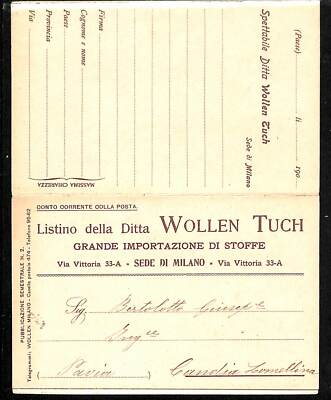 (Paese) li 190
Spettabile Ditta Wollen Tuch
Sede di Milano
Firma
Cognome e nome
Paese
Provincia
Via
MASSIMA CHIAREZZA
CONTO CORRENTE COLLA POSTA.
Listino della Ditta WOLLEN TUCH
GRANDE IMPORTAZIONE DI STOFFE
Via Vittoria 33-A - SEDE DI MILANO - Via Vittoria 33-A
PUBBLICAZIONE SEMESTRALE N. 2.
Telegrammi: WOLLEN MILANO - Casella postale 476 - Telefono 90-62
Sig. Bertolotto Giuseppe
Ing
Pavia) Candia Lomellina